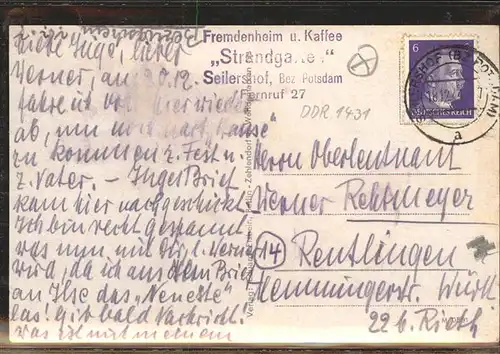 Liebe Inge, lieber
Werner, am 20.12.
fahre ich von hier wieder
ab, um noch nach Hause
zu kommen z. Fest u.
z. Vater. – Inges Brief
kam hier nachgeschickt
Ich bin recht gespannt
was nun mit Dir, l. Werner
wird, da ich aus dem Brief
an Ilse das „Neueste"
las! Gib bald Nachricht!
Was ist mit meinem
Fremdenheim u. Kaffee
„Strandgarten"
Seilershof, Bez Potsdam
Fernruf 27
DDR. 1431
6
DEUTSCHES REICH
SEILERSHOF (BZ POTSDAM)
a
Herrn Oberleutnant
Werner Rehtmeyer
14 Reutlingen
Hemmingerstr. Württ
22 b. Rieth